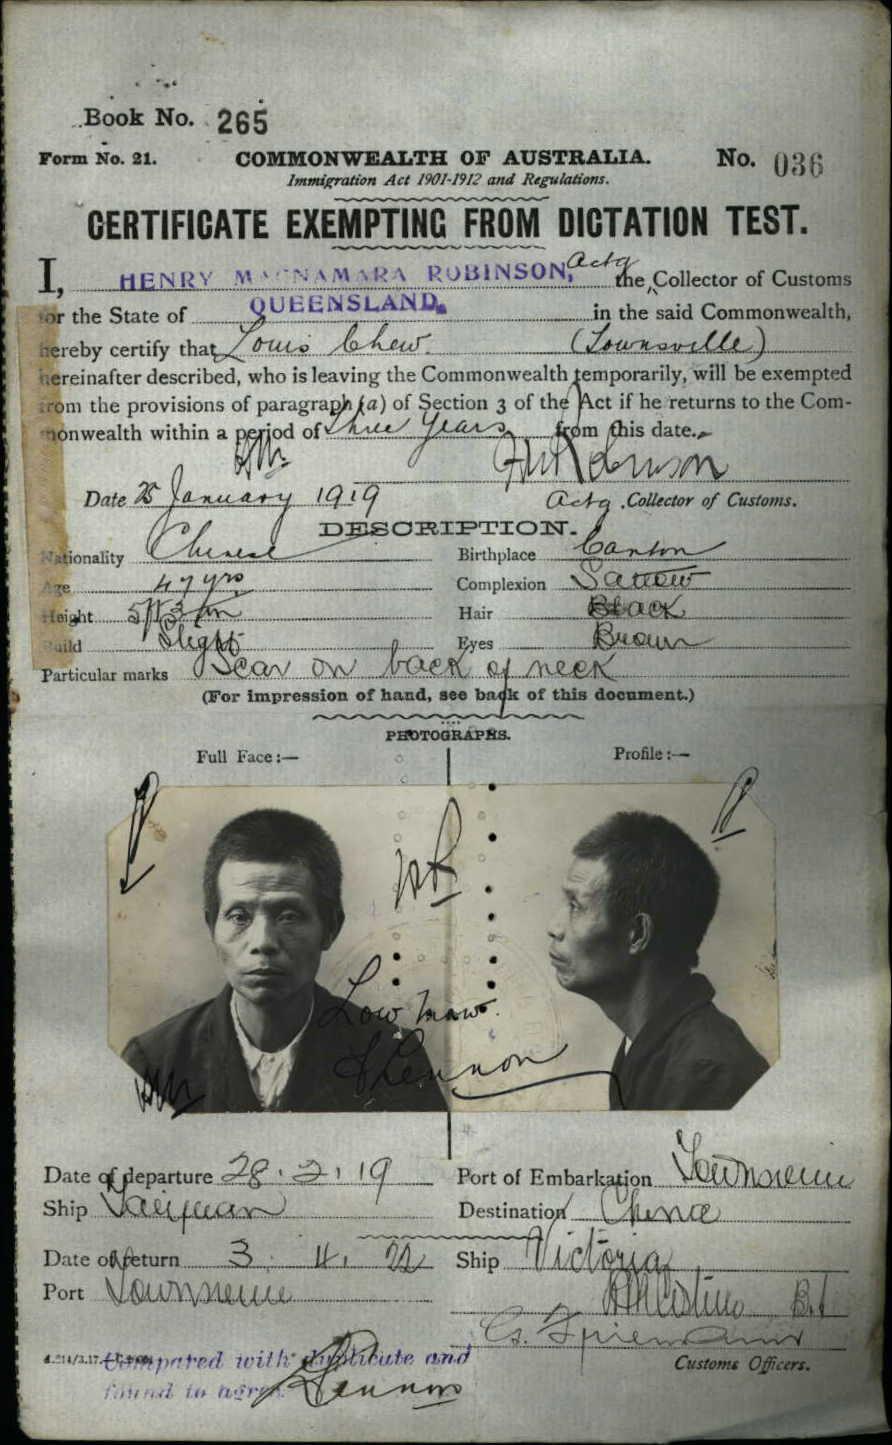 Book No. 265
Form No. 21. COMMONWEALTH OF AUSTRALIA. No. 036
Immigration Act 1901-1912 and Regulations.
CERTIFICATE EXEMPTING FROM DICTATION TEST.
I, HENRY MACNAMARA ROBINSON, Actg the Collector of Customs
for the State of QUEENSLAND. in the said Commonwealth,
hereby certify that Louis Chew. (Townsville)
hereinafter described, who is leaving the Commonwealth temporarily, will be exempted
from the provisions of paragraph (a) of Section 3 of the Act if he returns to the Com-
monwealth within a period of three years from this date.
Robinson
Date 25 January 1919 Actg. Collector of Customs.
DESCRIPTION.
Nationality Chinese Birthplace Canton
Age 47 yrs Complexion Sallow
Height 5ft 3 in Hair Black
Build Slight Eyes Brown
Particular marks Scar on back of neck
(For impression of hand, see back of this document.)
PHOTOGRAPHS.
Full Face:— Profile:—
Low
Lennon
Date of departure 28.2.19 Port of Embarkation Townsville
Ship Taiyuan Destination China
Date of return 3. 4. 22 Ship Victoria
Port Townsville
Compared with duplicate and Customs Officers.
found to agree Lennon